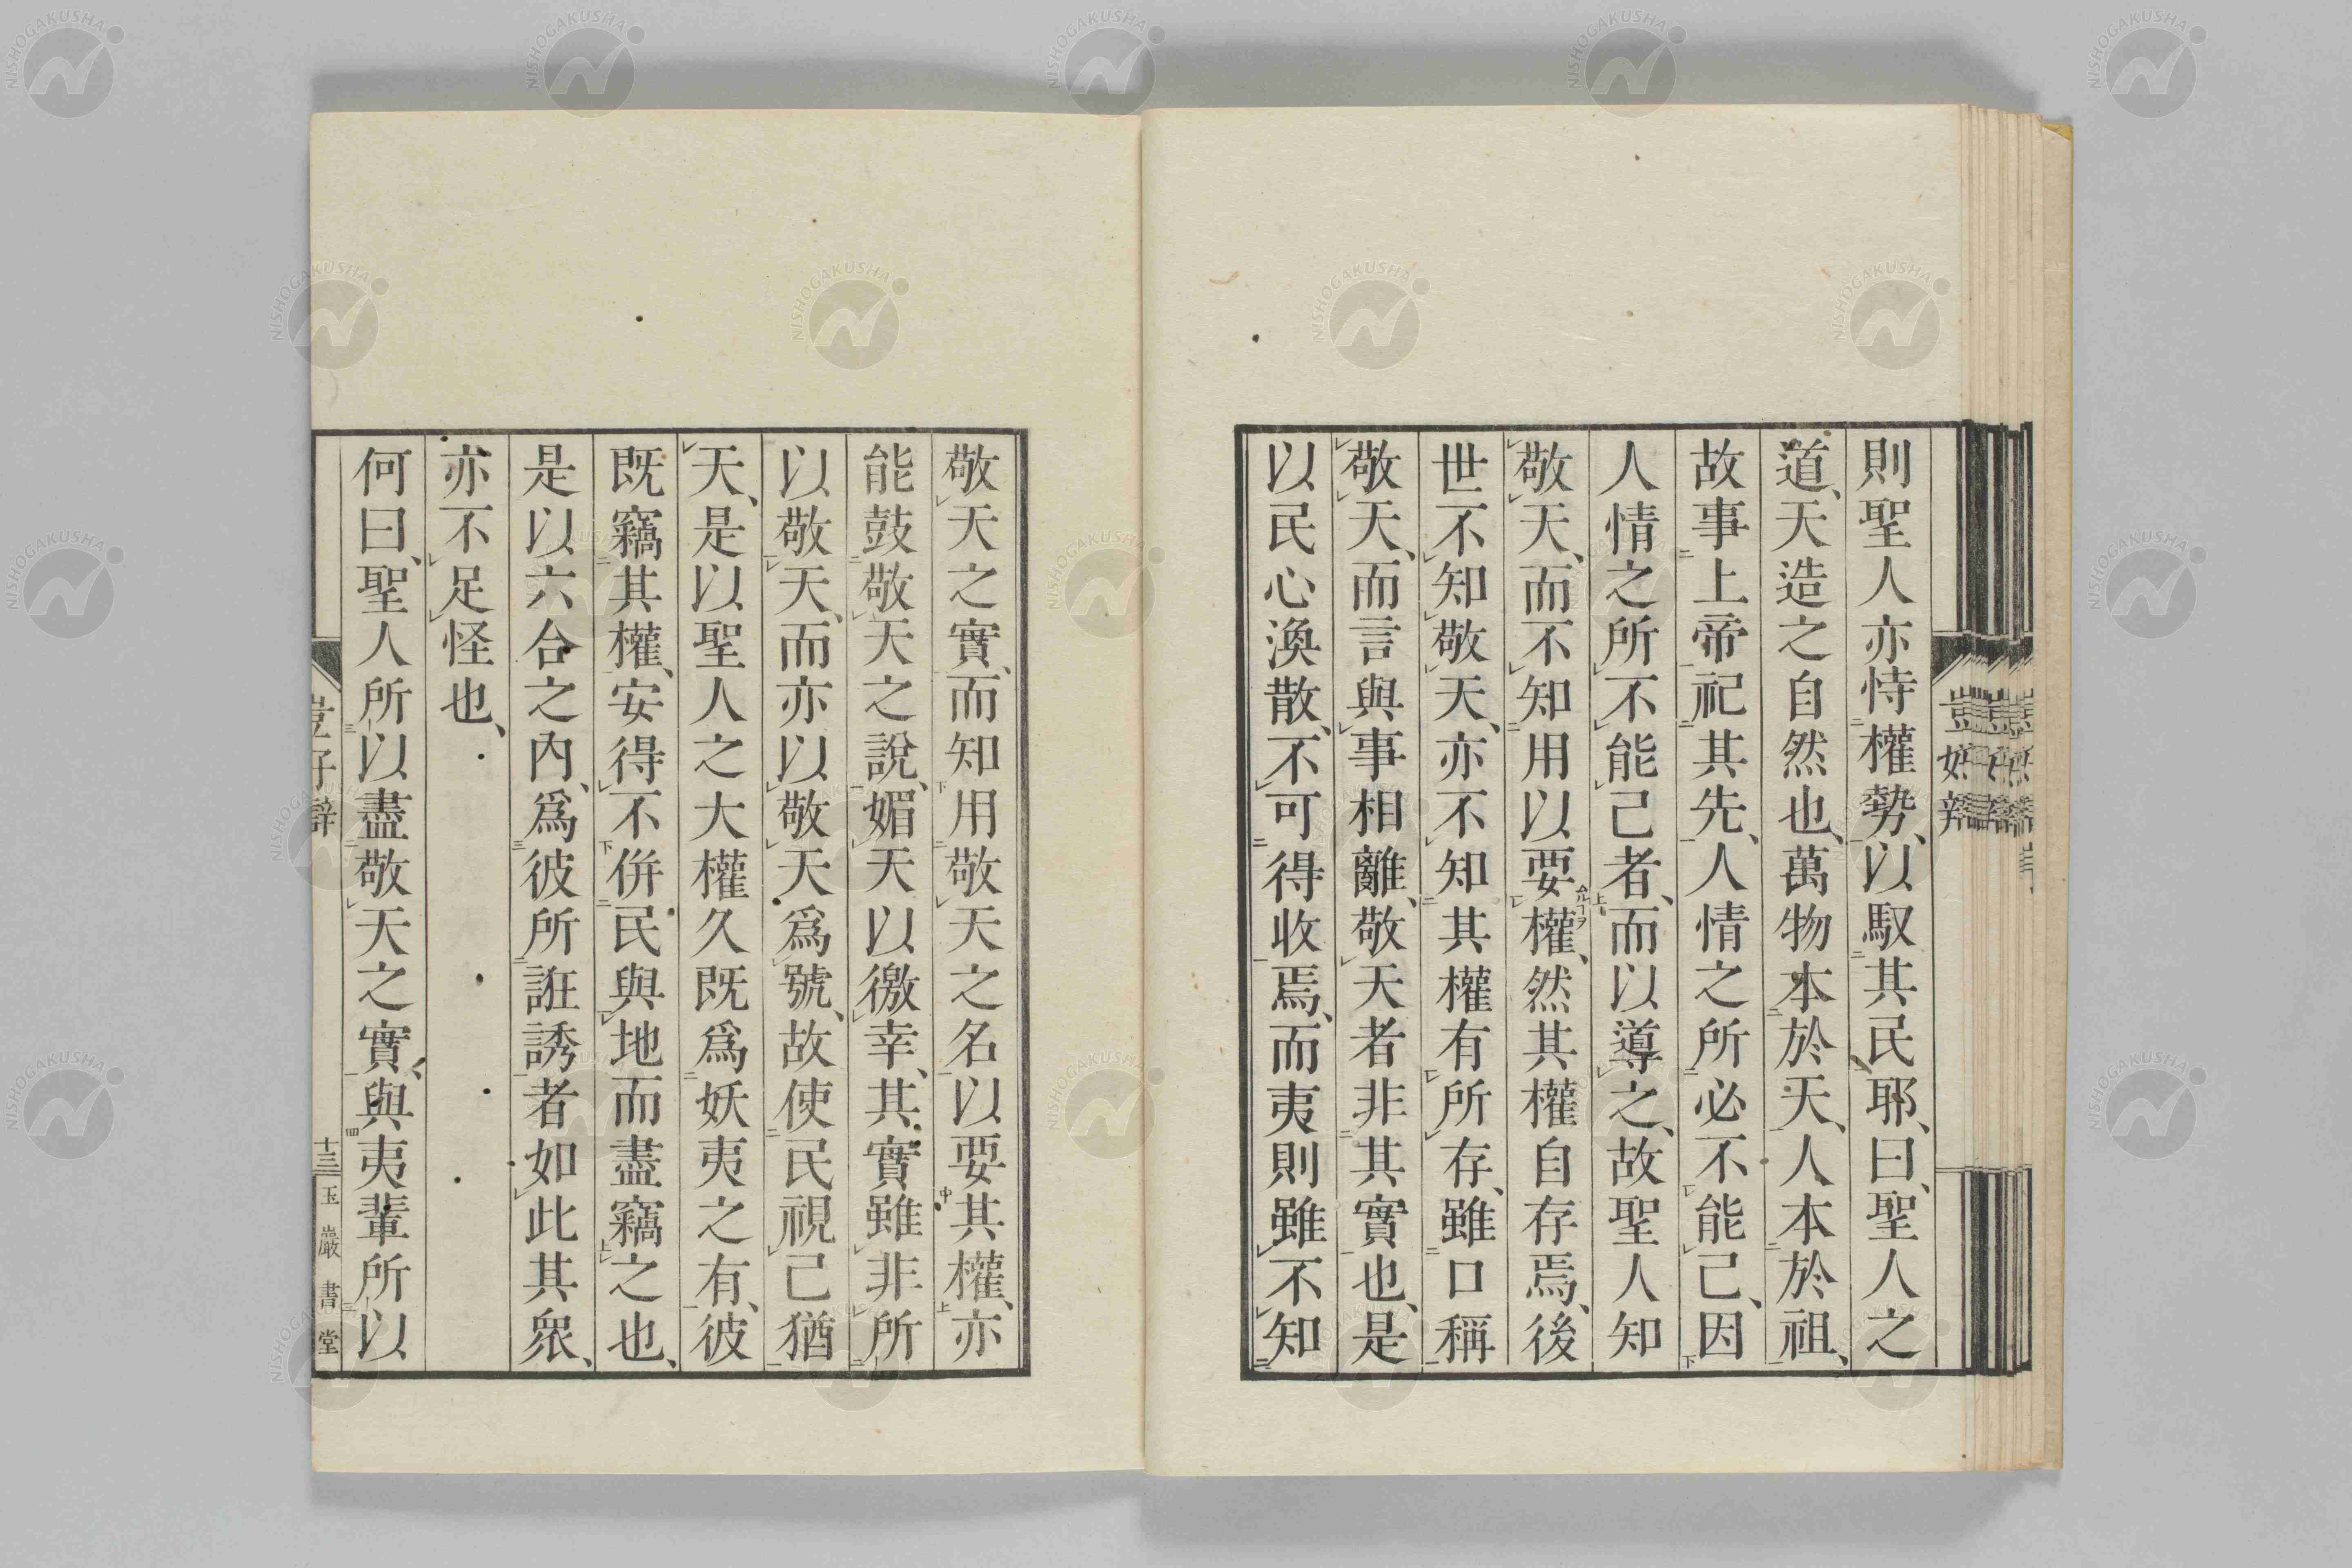 則聖人亦恃權勢、以馭其民耶、曰、聖人之
道、天造之自然也、萬物本於天、人本於祖、
故事上帝祀其先、人情之所必不能已、因
人情之所不能已者、而以導之、故聖人知
敬天、而不知用以要權、然其權自存焉、後
世不知敬天、亦不知其權有所存、雖口稱
敬天、而言與事相離、敬天者非其實也、是
以民心渙散、不可得收焉、而夷則雖不知
敬天之實、而知用敬天之名以要其權、亦
能鼓敬天之說、媚天以徼幸、其實雖非所
以敬天、而亦以敬天爲號、故使民視己猶
天、是以聖人之大權久既爲妖夷之有、彼
既竊其權、安得不併民與地而盡竊之也、
是以六合之內、爲彼所誑誘者如此其衆、
亦不足怪也、
何曰、聖人所以盡敬天之實、與夷輩所以
十三 玉巖書堂
NISHOGAKUSHA